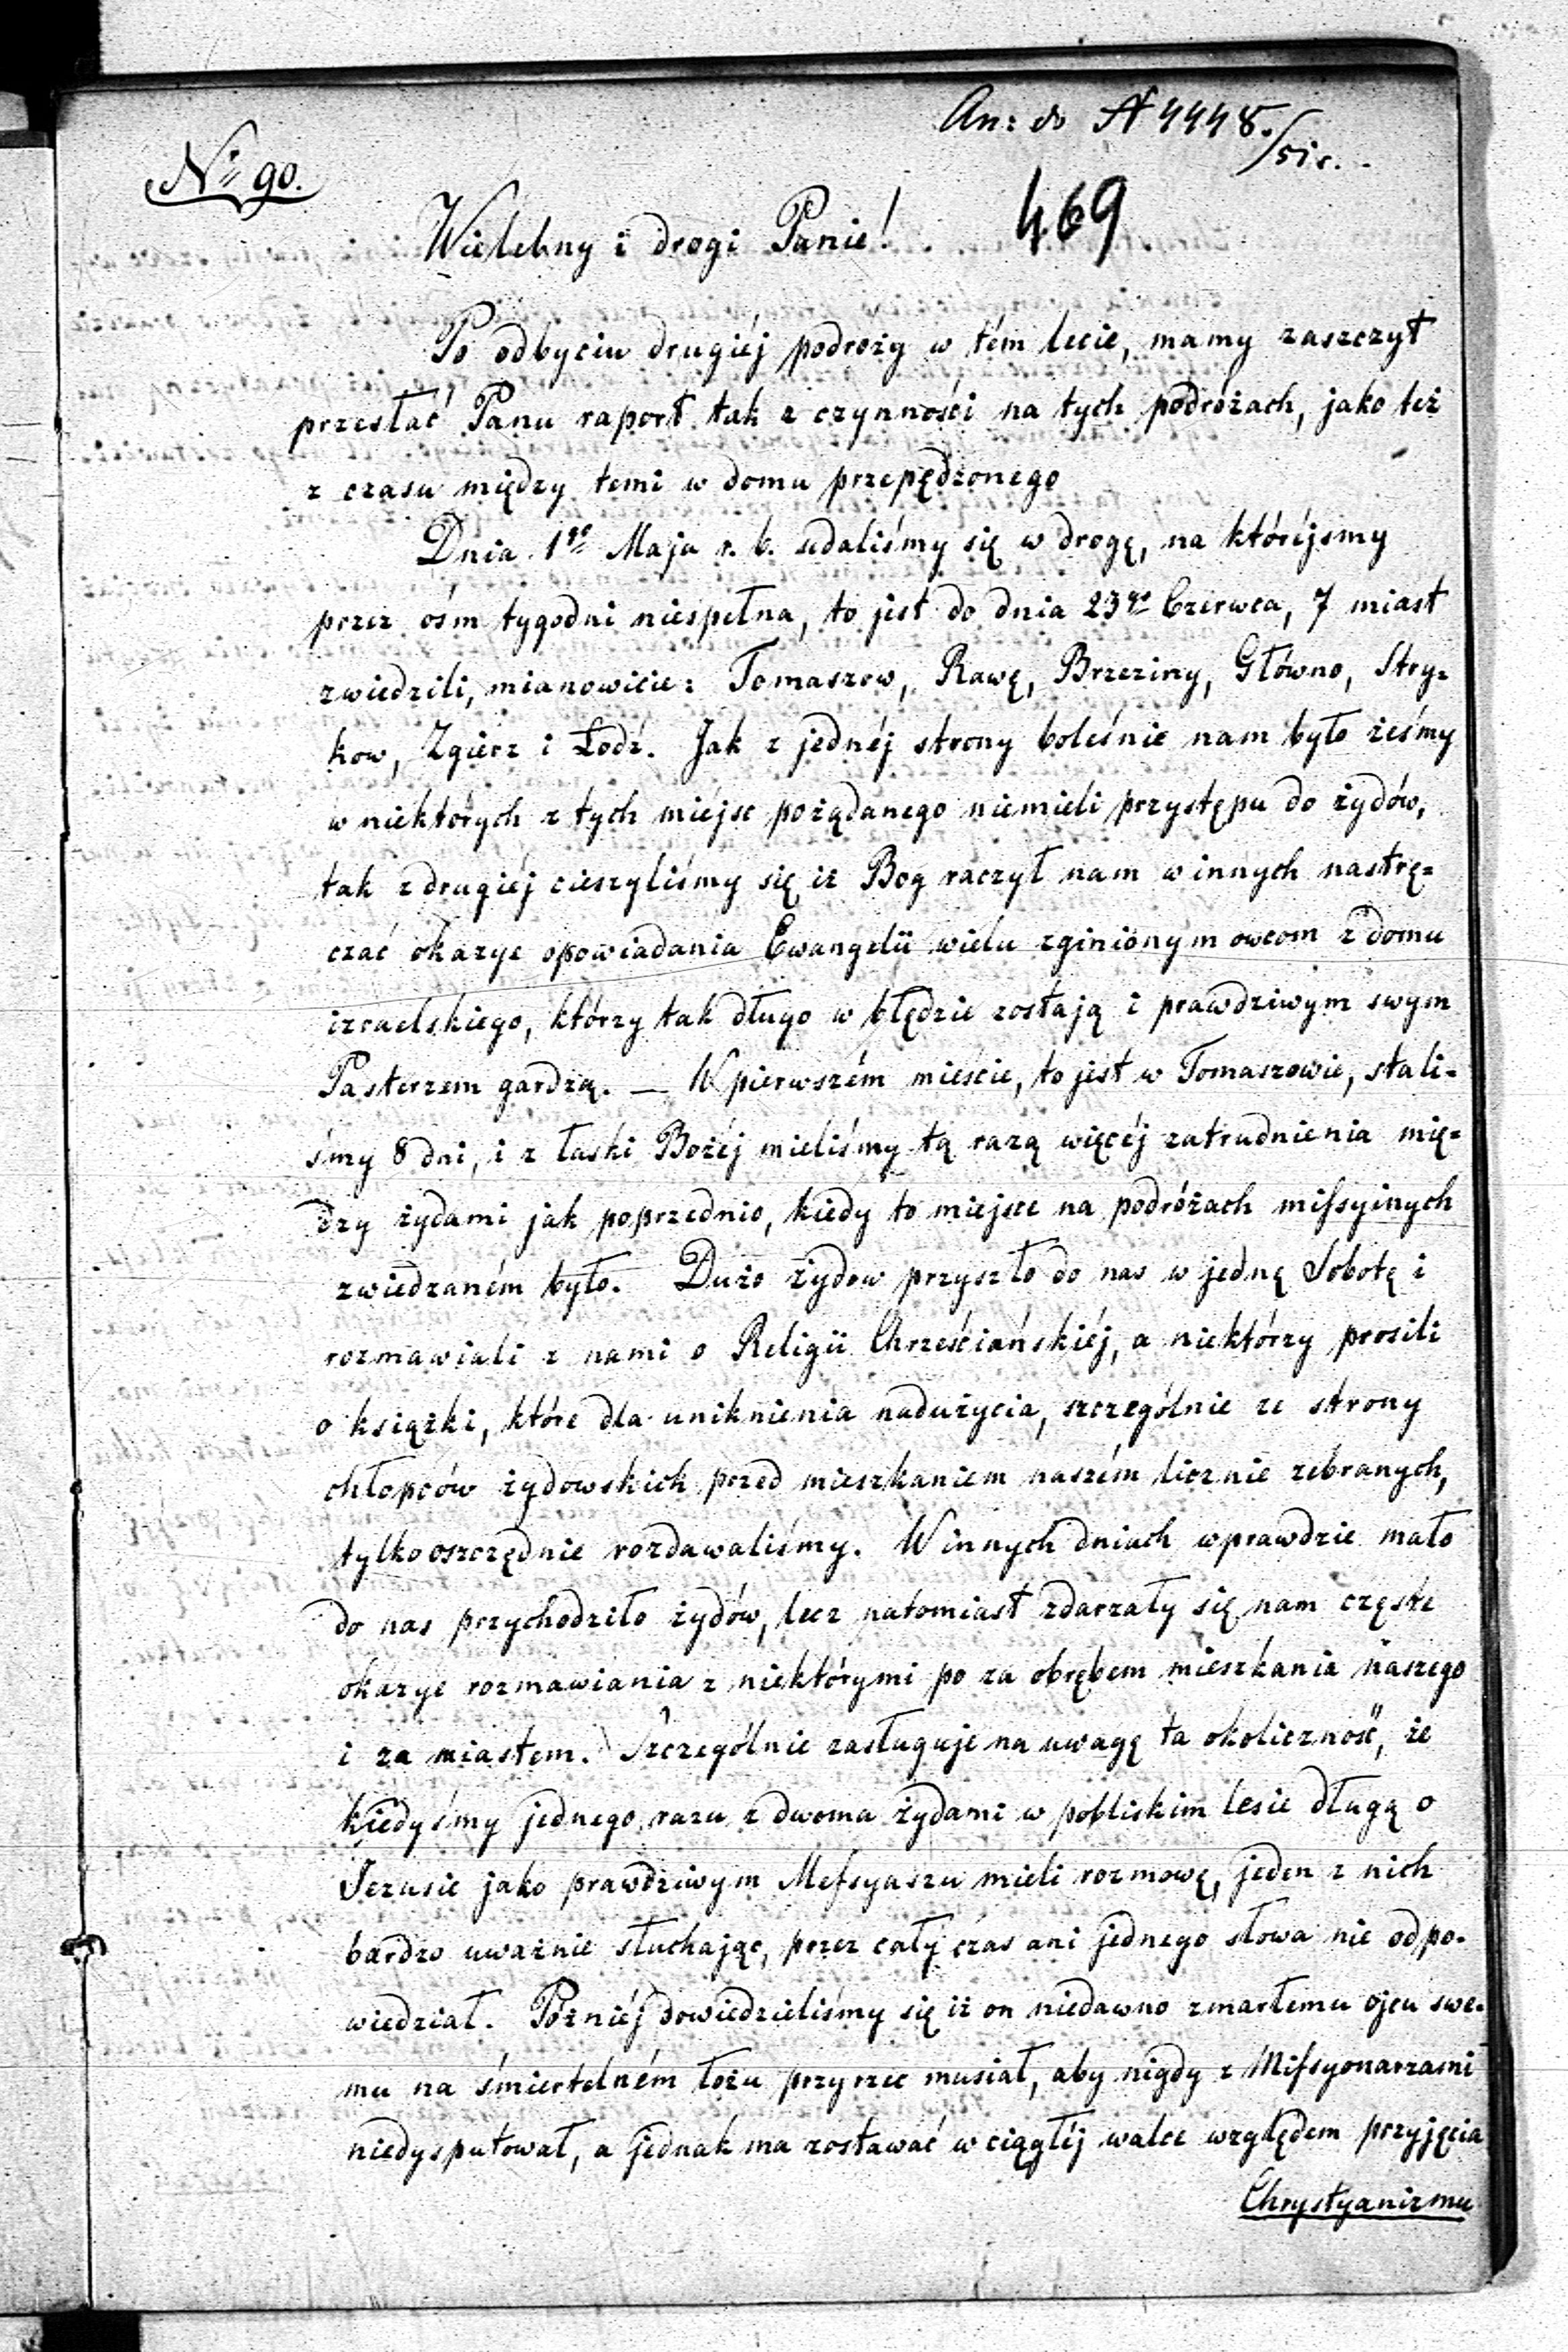 An: do N 4448./51 r.
Nr 90.
469
Wielebny i drogi Panie!
Po odbyciu drugiéj podroży w tém lecie, mamy zaszczyt
przesłać Panu raport tak z czynności na tych podróżach, jako też
z czasu między temi w domu przepędzonego
Dnia 1go Maja r. b. udaliśmy się w drogę, na któréjsmy
przez ośm tygodni niespełna, to jest do dnia 23go Czerwca, 7 miast
zwiedzili, mianowicie: Tomaszow, Rawę, Brzeziny, Główno, Stry-
kow, Zgierz i Łodź. Jak z jednéj strony boleśnie nam było żeśmy
w niektórych z tych miéjsc pożądanego niemieli przystępu do żydów,
tak z drugiéj cieszyliśmy się iż Bog raczył nam w innych nastrę-
czać okazye opowiadania Ewangelii wielu zginionym owcom z domu
izraelskiego, którzy tak długo w błędzie zostają i prawdziwym swym
Pasterzem gardzą. — W pierwszém mieście, to jest w Tomaszowie, stali-
śmy 8 dni, i z łaski Bożéj mieliśmy tą razą więcéj zatrudnienia mię-
dzy żydami jak poprzednio, kiedy to miejsce na podróżach missyinych
zwiedzaném było. Dużo żydow przyszło do nas w jednę Sobotę i
rozmawiali z nami o Religii Chrześciańskiéj, a niektórzy prosili
o książki, które dla uniknienia nadużycia, szczególnie ze strony
chłopców żydowskich przed mieszkaniem naszém licznie zebranych,
tylko oszczędnie rozdawaliśmy. W innych dniach wprawdzie mało
do nas przychodziło żydów, lecz natomiast zdarzały się nam częste
okazye rozmawiania z niektórymi po za obrębem mieszkania naszego
i za miastem. Szczególnie zasługuje na uwagę ta okoliczność, że
kiedyśmy jednego razu z dwoma żydami w pobliskim lesie długą o
Jezusie jako prawdziwym Messyaszu mieli rozmowę, jeden z nich
bardzo uważnie słuchając, przez cały czas ani jednego słowa nie odpo-
wiedział. Pózniéj dowiedzieliśmy się iż on niedawno zmarłemu ojcu swe-
mu na śmiertelném łożu przyrzec musiał, aby nigdy z Missyonarzami
niedysputował, a jednak ma zostawać w ciągłéj walce względem przyjęcia
Chrystyanizmu